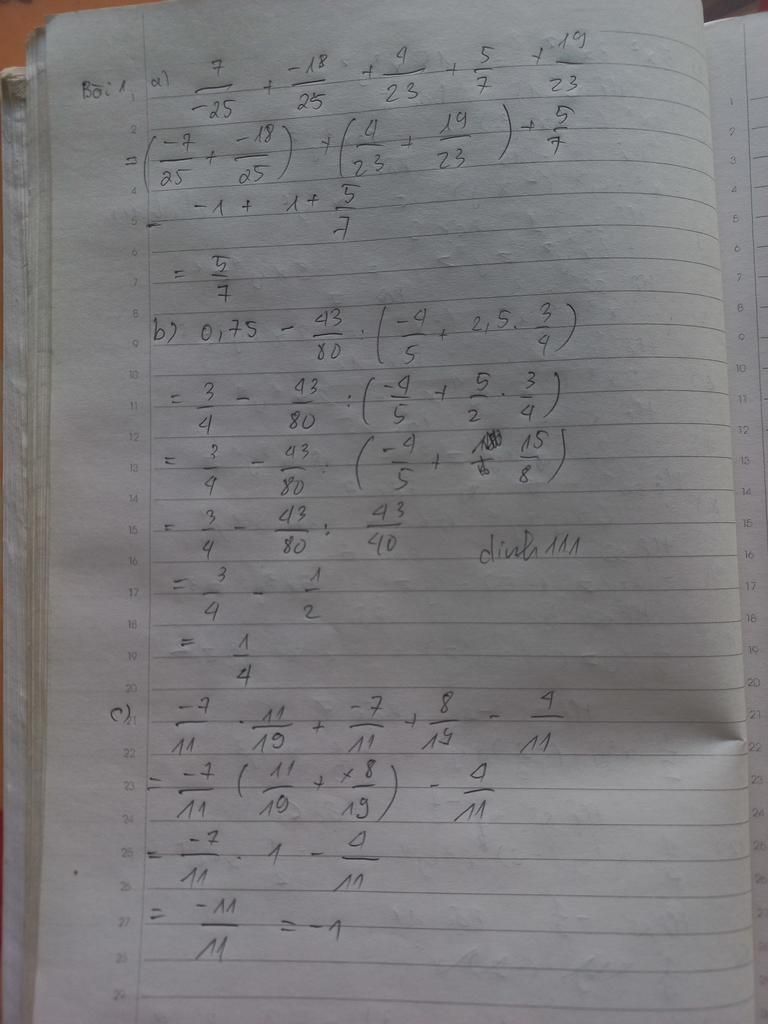 Bài 1. a) 7/-25 + -18/25 + 4/23 + 5/7 + 19/23
= (-7/25 + -18/25) + (4/23 + 19/23) + 5/7
= -1 + 1 + 5/7
= 5/7
b) 0,75 - 43/80 : (-4/5 + 2,5 . 3/4)
= 3/4 - 43/80 : (-4/5 + 5/2 . 3/4)
= 3/4 - 43/80 : (-4/5 + 15/8)
= 3/4 - 43/80 : 43/40
dinh111
= 3/4 - 1/2
= 1/4
c) -7/11 . 11/19 + -7/11 + 8/19 - 4/11
= -7/11 (11/19 + 8/19) - 4/11
= -7/11 . 1 - 4/11
= -11/11 = -1
1
2
3
4
5
6
7
8
9
10
11
12
13
14
15
16
17
18
19
20
21
22
23
24
25
26
27
28
29